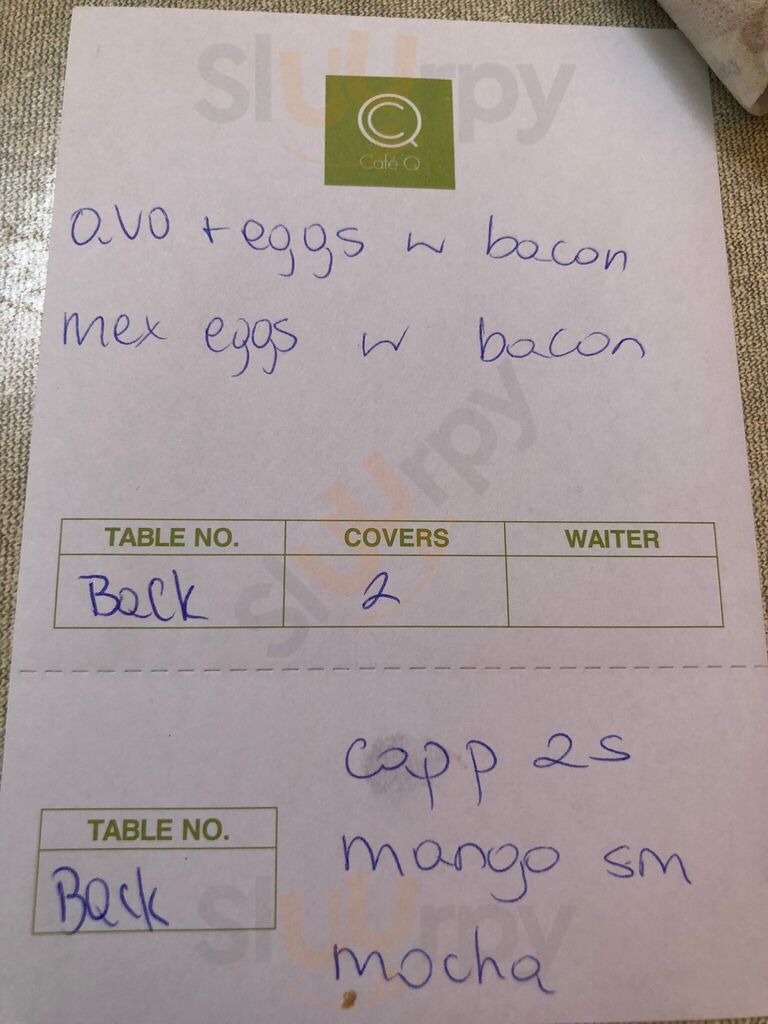 Sluurpy
CQ
Café Q
avo + eggs w bacon
mex eggs w bacon
Sluurpy
TABLE NO. COVERS WAITER
Back 2
capp 2s
TABLE NO.
mango sm
Back
Sluurpy
mocha